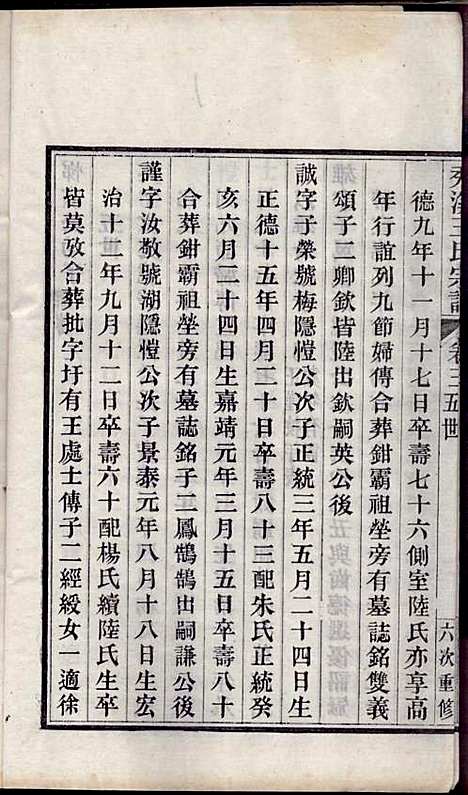 王氏宗譜 卷三 五世 六次重修
德九年十一月十七日卒壽七十六側室陸氏亦享高
年行誼列九節婦傳合葬鉗霸祖塋旁有墓誌銘雙義
頌子二卿欽皆陸出欽嗣英公後
誠字子榮號梅隱愷公次子正統三年五月二十四日生
正德十五年四月二十日卒壽八十三配朱氏正統癸
亥六月二十四日生嘉靖元年三月十五日卒壽八十
合葬鉗霸祖塋旁有墓誌銘子二鳳鵠鵠出嗣謙公後
謹字汝敬號湖隱愷公次子景泰元年八月十八日生宏
治十二年九月十二日卒壽六十配楊氏續陸氏生卒
皆莫攷合葬批字圩有王處士傳子二經綬女一適徐